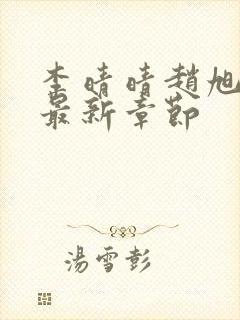 李晴晴趙旭
最新章節
湯雪彭